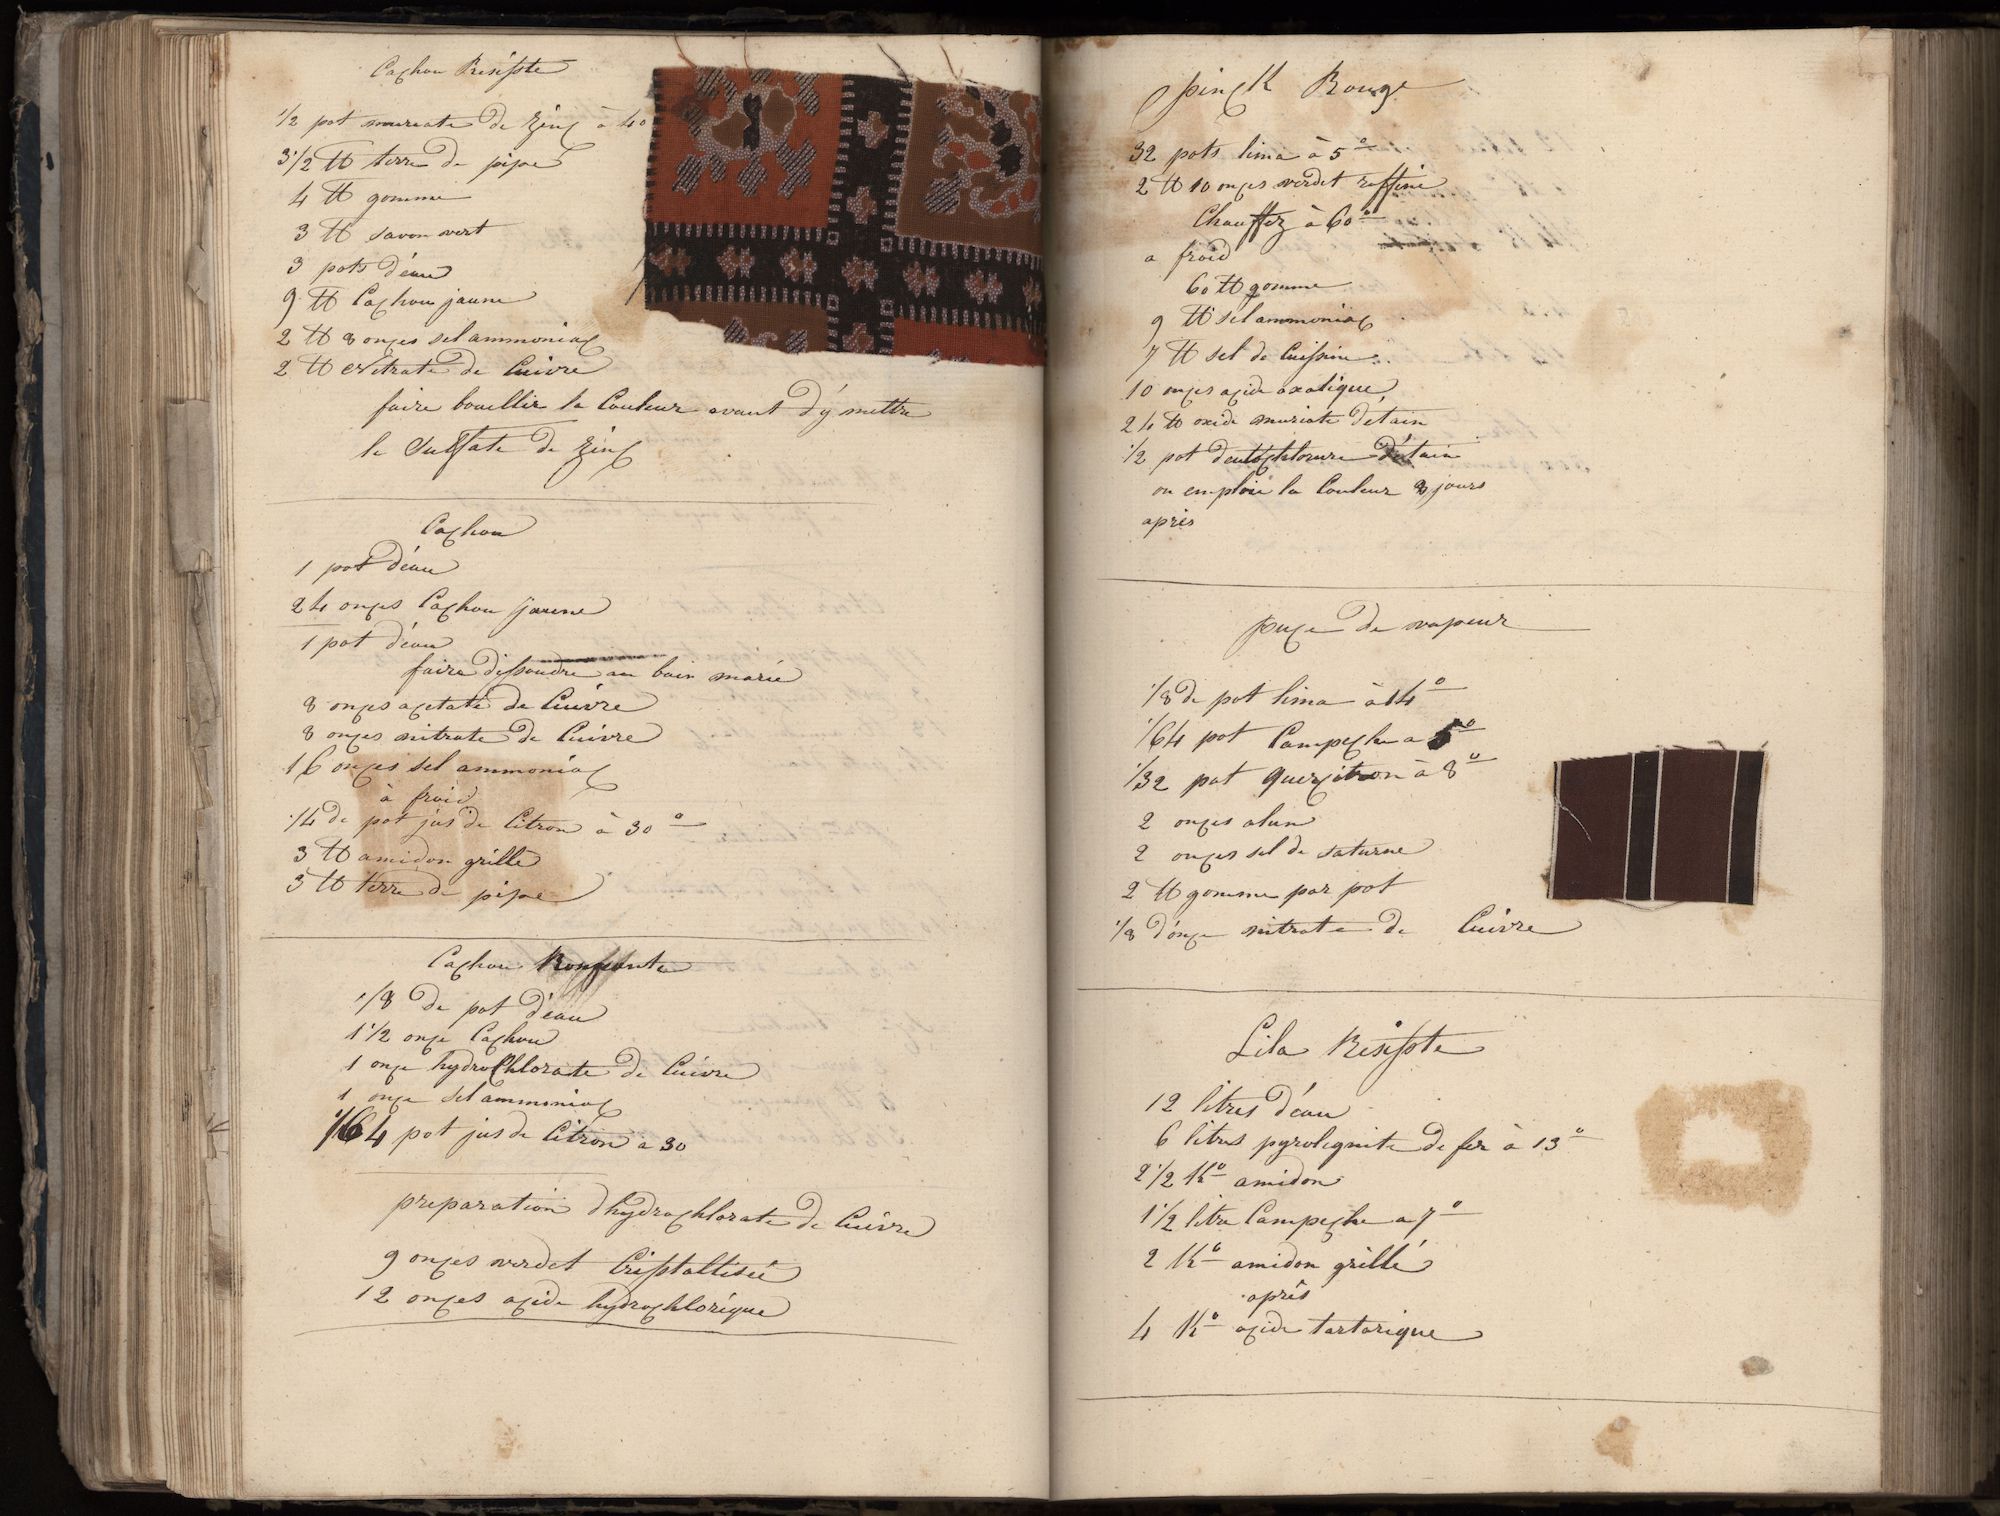 Cachou Résiste
1/2 pot muriate de zinc à 40
3 1/2 ℔ terre de pipe
4 ℔ gomme
3 ℔ savon vert
3 pots d'eau
9 ℔ Cachou jaune
2 ℔ 8 onces sel ammoniac
2 ℔ Nitrate de Cuivre
faire bouillir la Couleur avant d'y mettre
le Sulfate de zinc
Cachou
1 pot d'eau
24 onces Cachou jaune
1 pot d'eau
faire dissoudre au bain marie
8 onces acetate de Cuivre
8 onces nitrate de Cuivre
16 onces sel ammoniac
à froid
1/4 de pot jus de Citron à 30°
3 ℔ amidon grillé
3 ℔ terre de pipe
Cachou Rongeante
1/8 de pot d'eau
1 1/2 once Cachou
1 once hydroChlorate de Cuivre
1 once sel ammoniac
1/64 pot jus de Citron a 30
preparation d'hydrochlorate de Cuivre
9 onces verdet Cristallisée
12 onces acide hydrochlorique
pinck Rouge
32 pots lima à 5°
2 ℔ 10 onces verdet raffiné
Chauffez à 60°
a froid
60 ℔ gomme
9 ℔ sel ammoniac
7 ℔ sel de Cuissine
10 onces acide oxalique
24 ℔ oxide muriate d'étain
1/2 pot deutochlorure d'étain
on emploie la Couleur 8 jours
après
puce de vapeur
1/8 de pot lima à 14°
1/64 pot Campeche a 5°
1/32 pot quercitron à 8°
2 onces alun
2 onces sel de saturne
2 ℔ gomme par pot
1/8 d'once nitrate de Cuivre
Lila Résiste
12 litres d'eau
6 litres pyrolignite de fer à 13°
2 1/2 K° amidon
1 1/2 litre Campeche a 7°
2 K° amidon grillé
après
4 K° acide tartarique